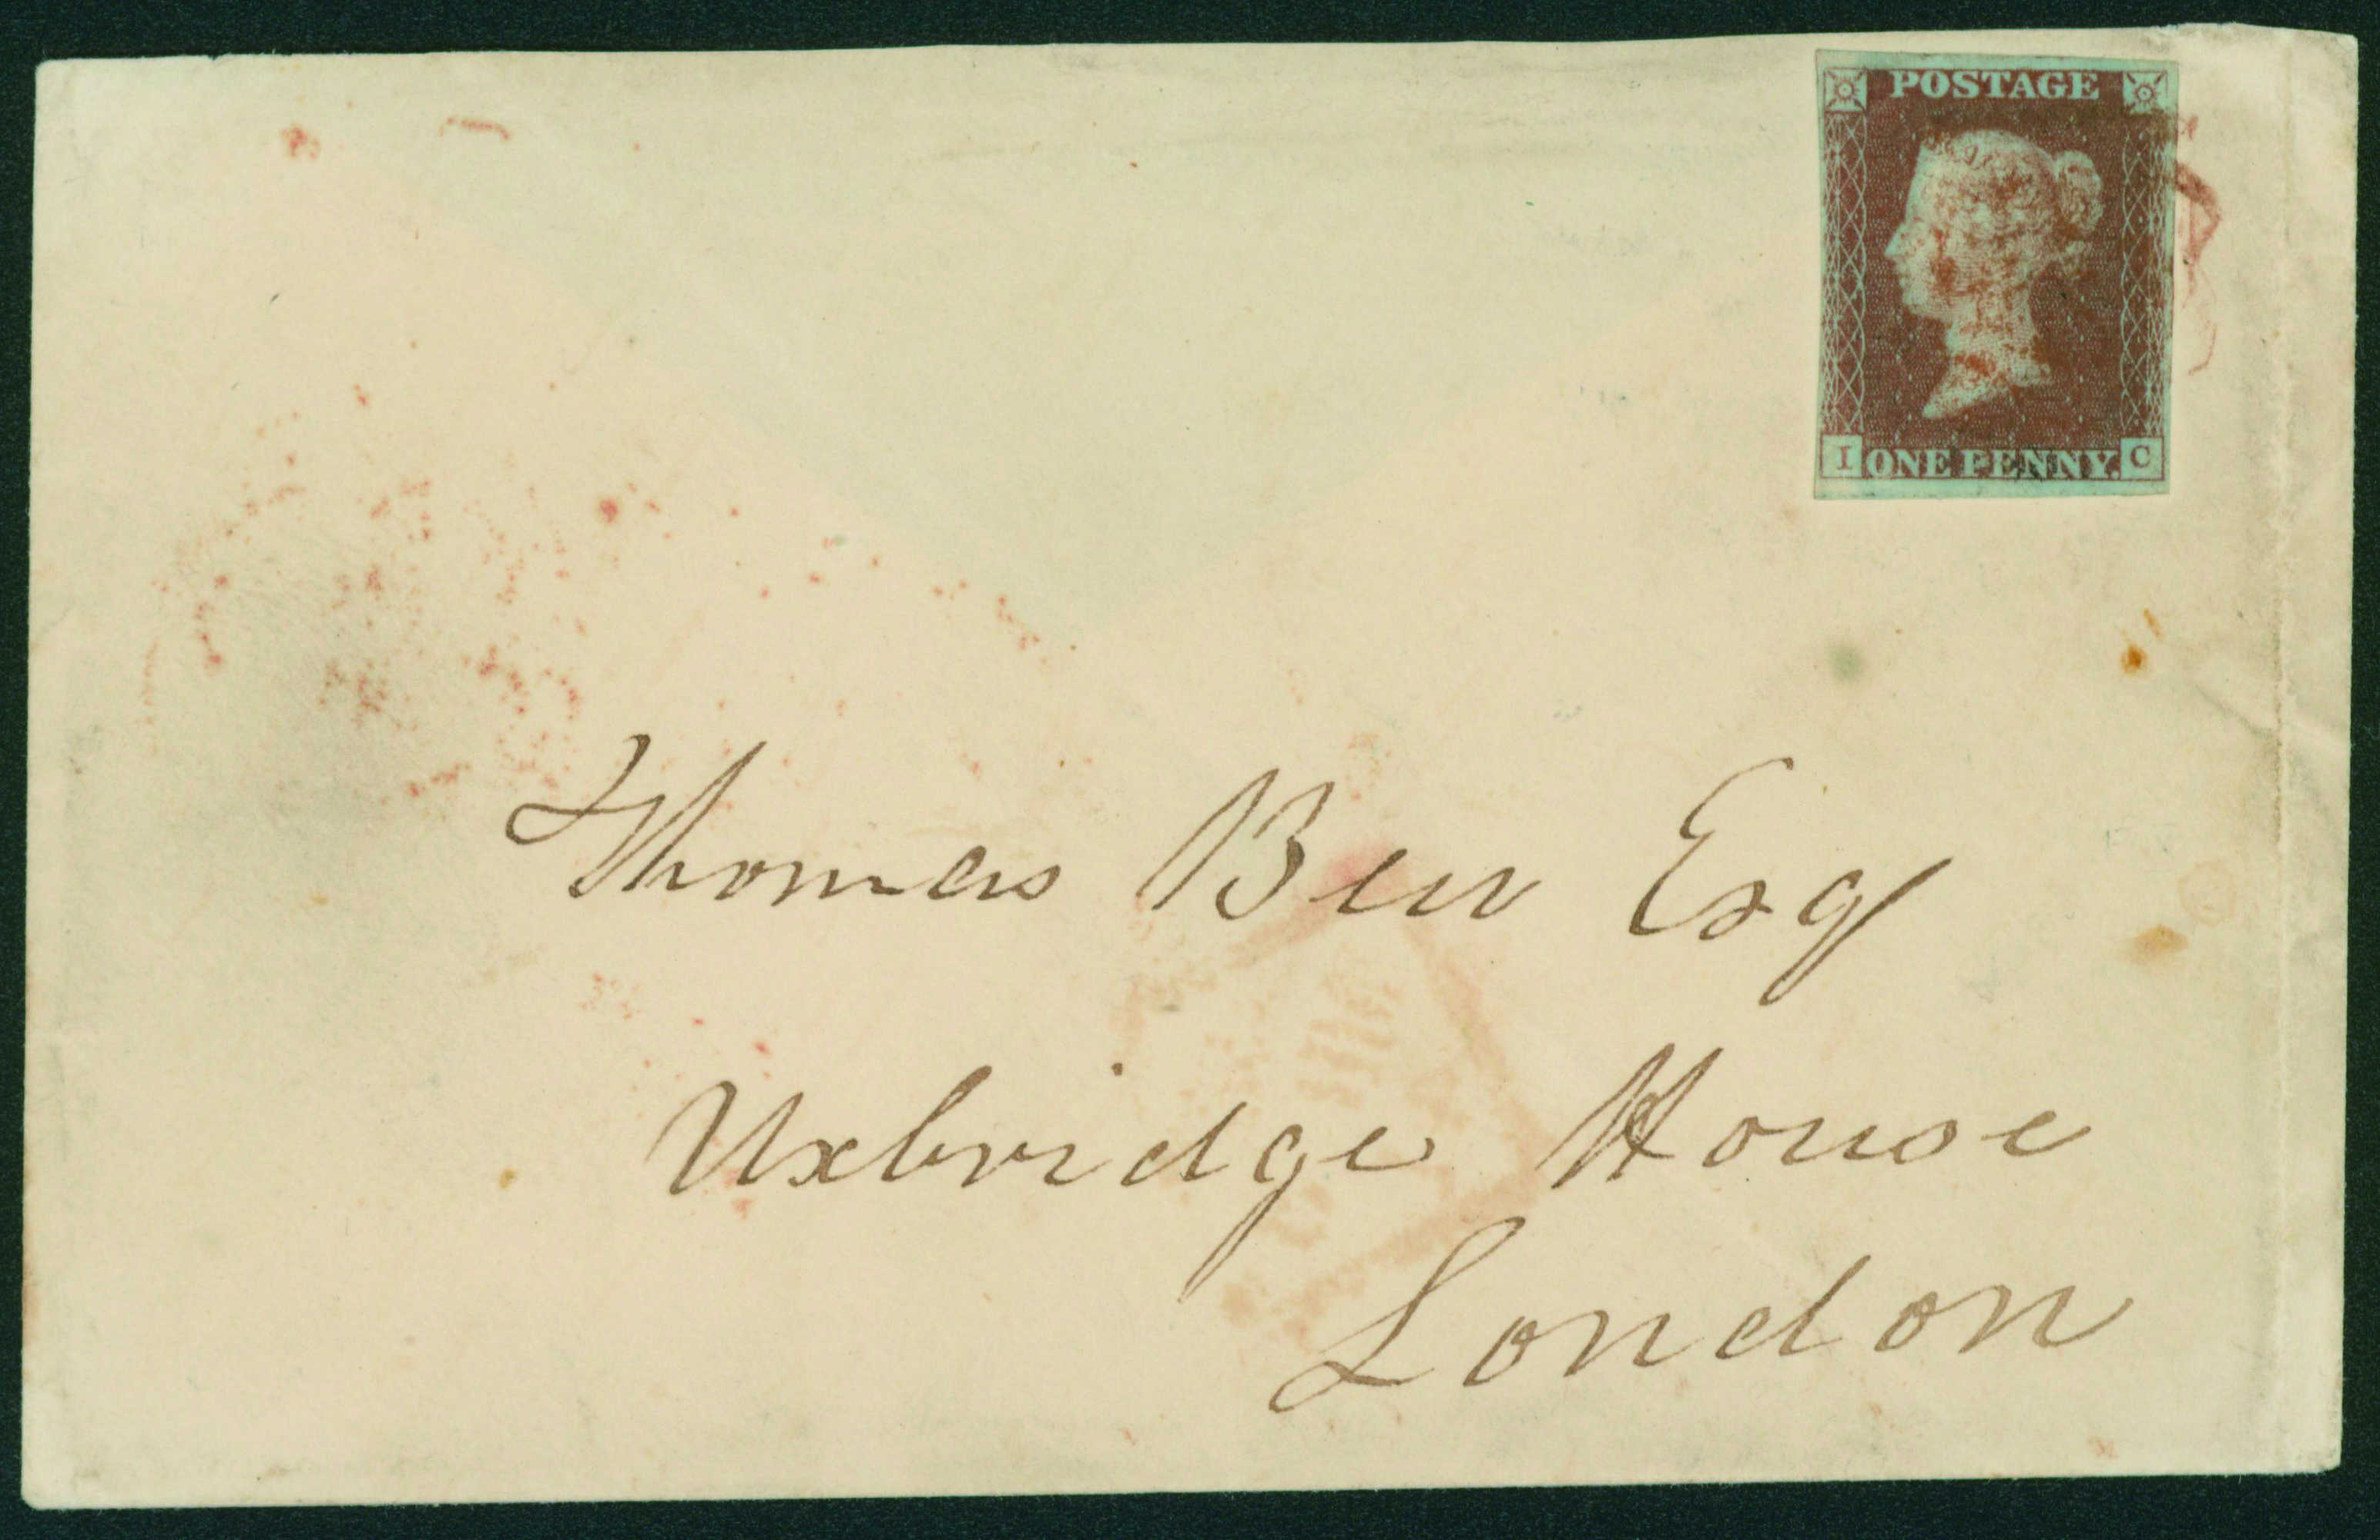 POSTAGE
I ONE PENNY. C
Thomas Bew Esq
Uxbridge House
London